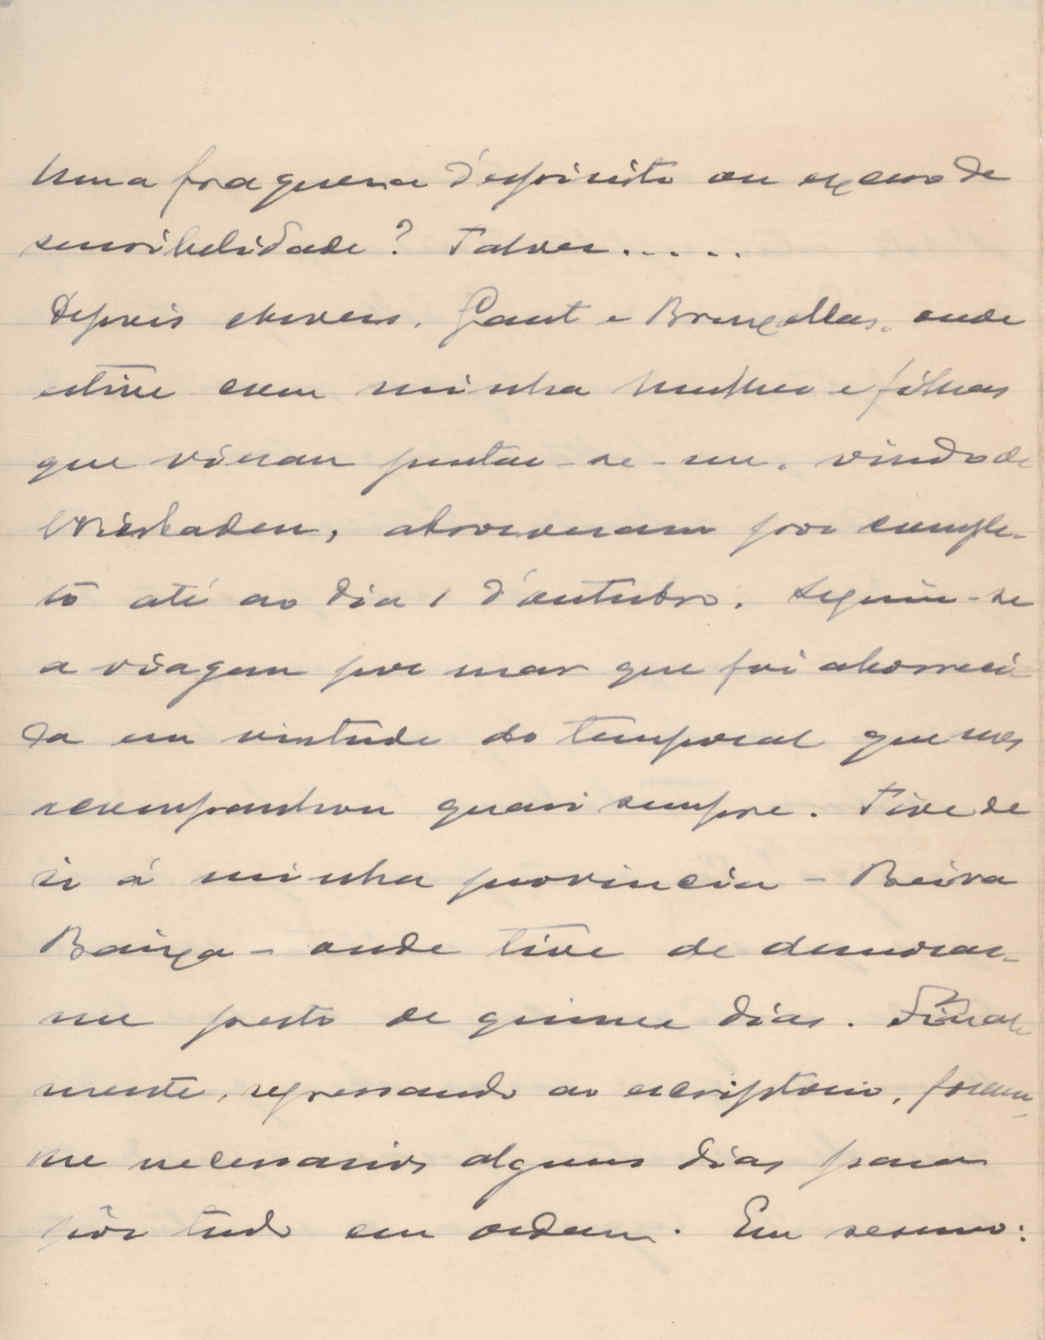 Uma fraqueza d'espirito ou excesso de
sensibilidade? Talvez.....
Depois Gant e Bruxellas, onde
estive com minha mulher e filhas
que vieram juntar-se-me, vindo de
Wiesbaden, absorveram por comple-
to até ao dia 1 d'outubro. Seguiu-se
a viagem por mar que foi aborreci
da em virtude do temporal que nos
acompanhou quasi sempre. Tive de
ir á minha provincia - Beira
Baixa - onde tive de demorar-
me perto de quinze dias. Final
mente, regressando ao escriptorio, foram-
me necessarios alguns dias para
pôr tudo em ordem. Em resumo: